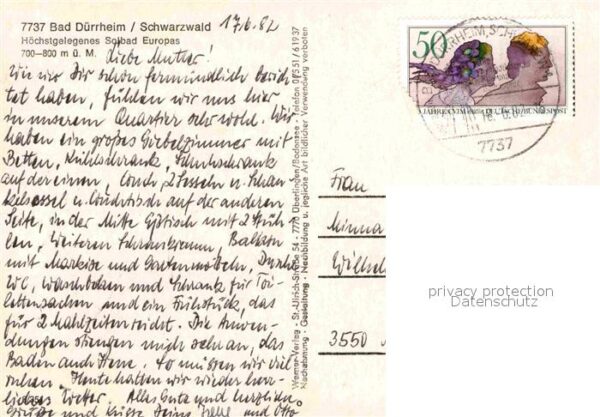 7737 Bad Dürrheim / Schwarzwald
Höchstgelegenes Solbad Europas
700–800 m ü. M.
17.6.82
Liebe Mutter!
Wie wir Dir schon fernmündlich berich-
tet haben, fühlen wir uns hier
in unserem Quartier sehr wohl. Wir
haben ein großes Giebelzimmer mit
Betten, Kühlschrank,
auf der einen, Couch, 2 Sesseln u. Schau
kelsessel u. auf der anderen
Seite, in der Mitte Eßtisch mit 2 Stüh-
len, Weiteren Balkon
mit Markise und Gartenmöbeln,
WC, Waschbecken und Schrank für Toi-
lettensachen und ein Frühstück, das
für 2 Mahlzeiten reicht. Die Anwen-
dungen strengen mich sehr an, das
Baden auch Irene. So müssen wir viel
ruhen. Heute hatten wir wieder herr-
liches Wetter. Alles Gute und herzliche
Grüße und Küsse Deine und Otto
Werner-Verlag - St.-Ulrich-Straße 54 - 7770 Überlingen/Bodensee - Telefon 07551/61937
Nachahmung - Gestaltung - Nachbildung u. jegliche Art bildlicher Verwendung verboten
50
DEUTSCHE BUNDESPOST
7737
Frau
Minna
Wilhel
3550
privacy protection
Datenschutz